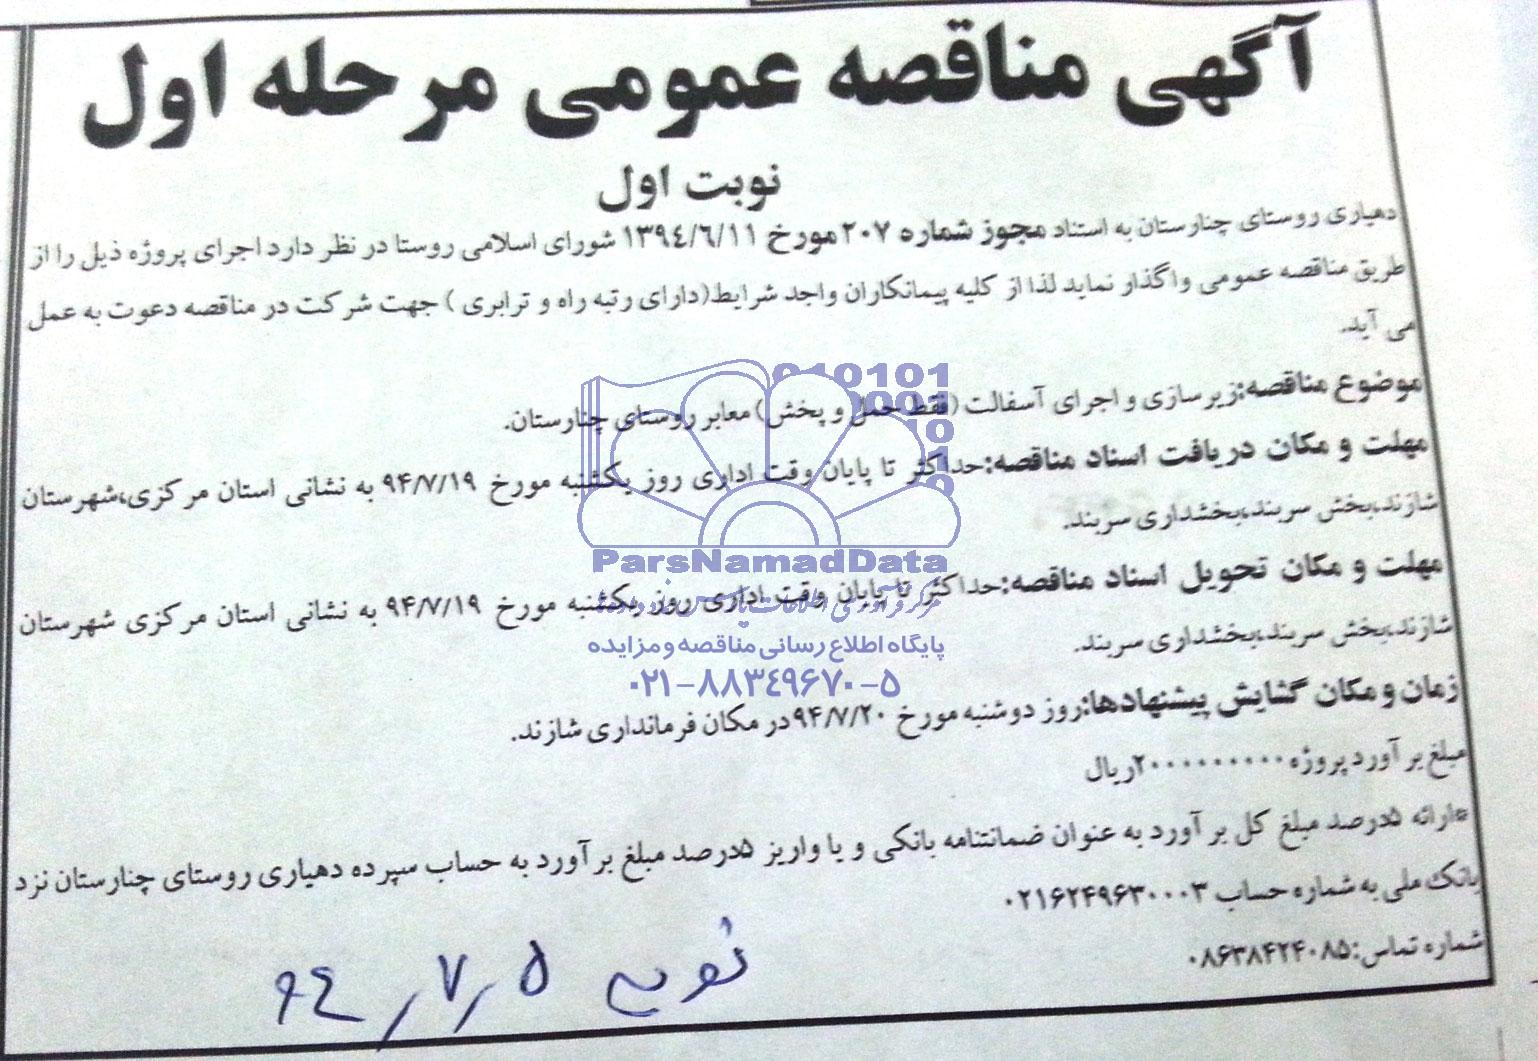 آگهی مناقصه عمومی مرحله اول
نوبت اول
دهیاری روستای چنارستان به استناد مجوز شماره ۲۰۷ مورخ ۱۳۹٤/٦/۱۱ شورای اسلامی روستا در نظر دارد اجرای پروژه ذیل را از
طریق مناقصه عمومی واگذار نماید لذا از کلیه پیمانکاران واجد شرایط(دارای رتبه راه و ترابری ) جهت شرکت در مناقصه دعوت به عمل
می آید.
موضوع مناقصه:زیرسازی و اجرای آسفالت (فقط حمل و پخش) معابر روستای چنارستان.
مهلت و مکان دریافت اسناد مناقصه:حداکثر تا پایان وقت اداری روز یکشنبه مورخ ۹۴/۷/۱۹ به نشانی استان مرکزی،شهرستان
شازند،بخش سربند،بخشداری سربند.
مهلت و مکان تحویل اسناد مناقصه:حداکثر تا پایان وقت اداری روز یکشنبه مورخ ۹۴/۷/۱۹ به نشانی استان مرکزی شهرستان
شازند،بخش سربند،بخشداری سربند.
زمان و مکان گشایش پیشنهادها:روز دوشنبه مورخ ۹۴/۷/۲۰در مکان فرمانداری شازند.
مبلغ برآورد پروژه ۲۰۰۰۰۰۰۰۰۰۰ریال
*ارائه ۵درصد مبلغ کل برآورد به عنوان ضمانتنامه بانکی و یا واریز ۵درصد مبلغ برآورد به حساب سپرده دهیاری روستای چنارستان نزد
بانک ملی به شماره حساب ۰۲۱۶۲۴۹۶۳۰۰۰۳
شماره تماس:۰۸۶۳۸۴۲۴۰۸۵
۹٤٫۷٫۵
ParsNamadData
پایگاه اطلاع رسانی مناقصه و مزایده
۰۲۱-۸۸۳٤۹٦۷۰-۵